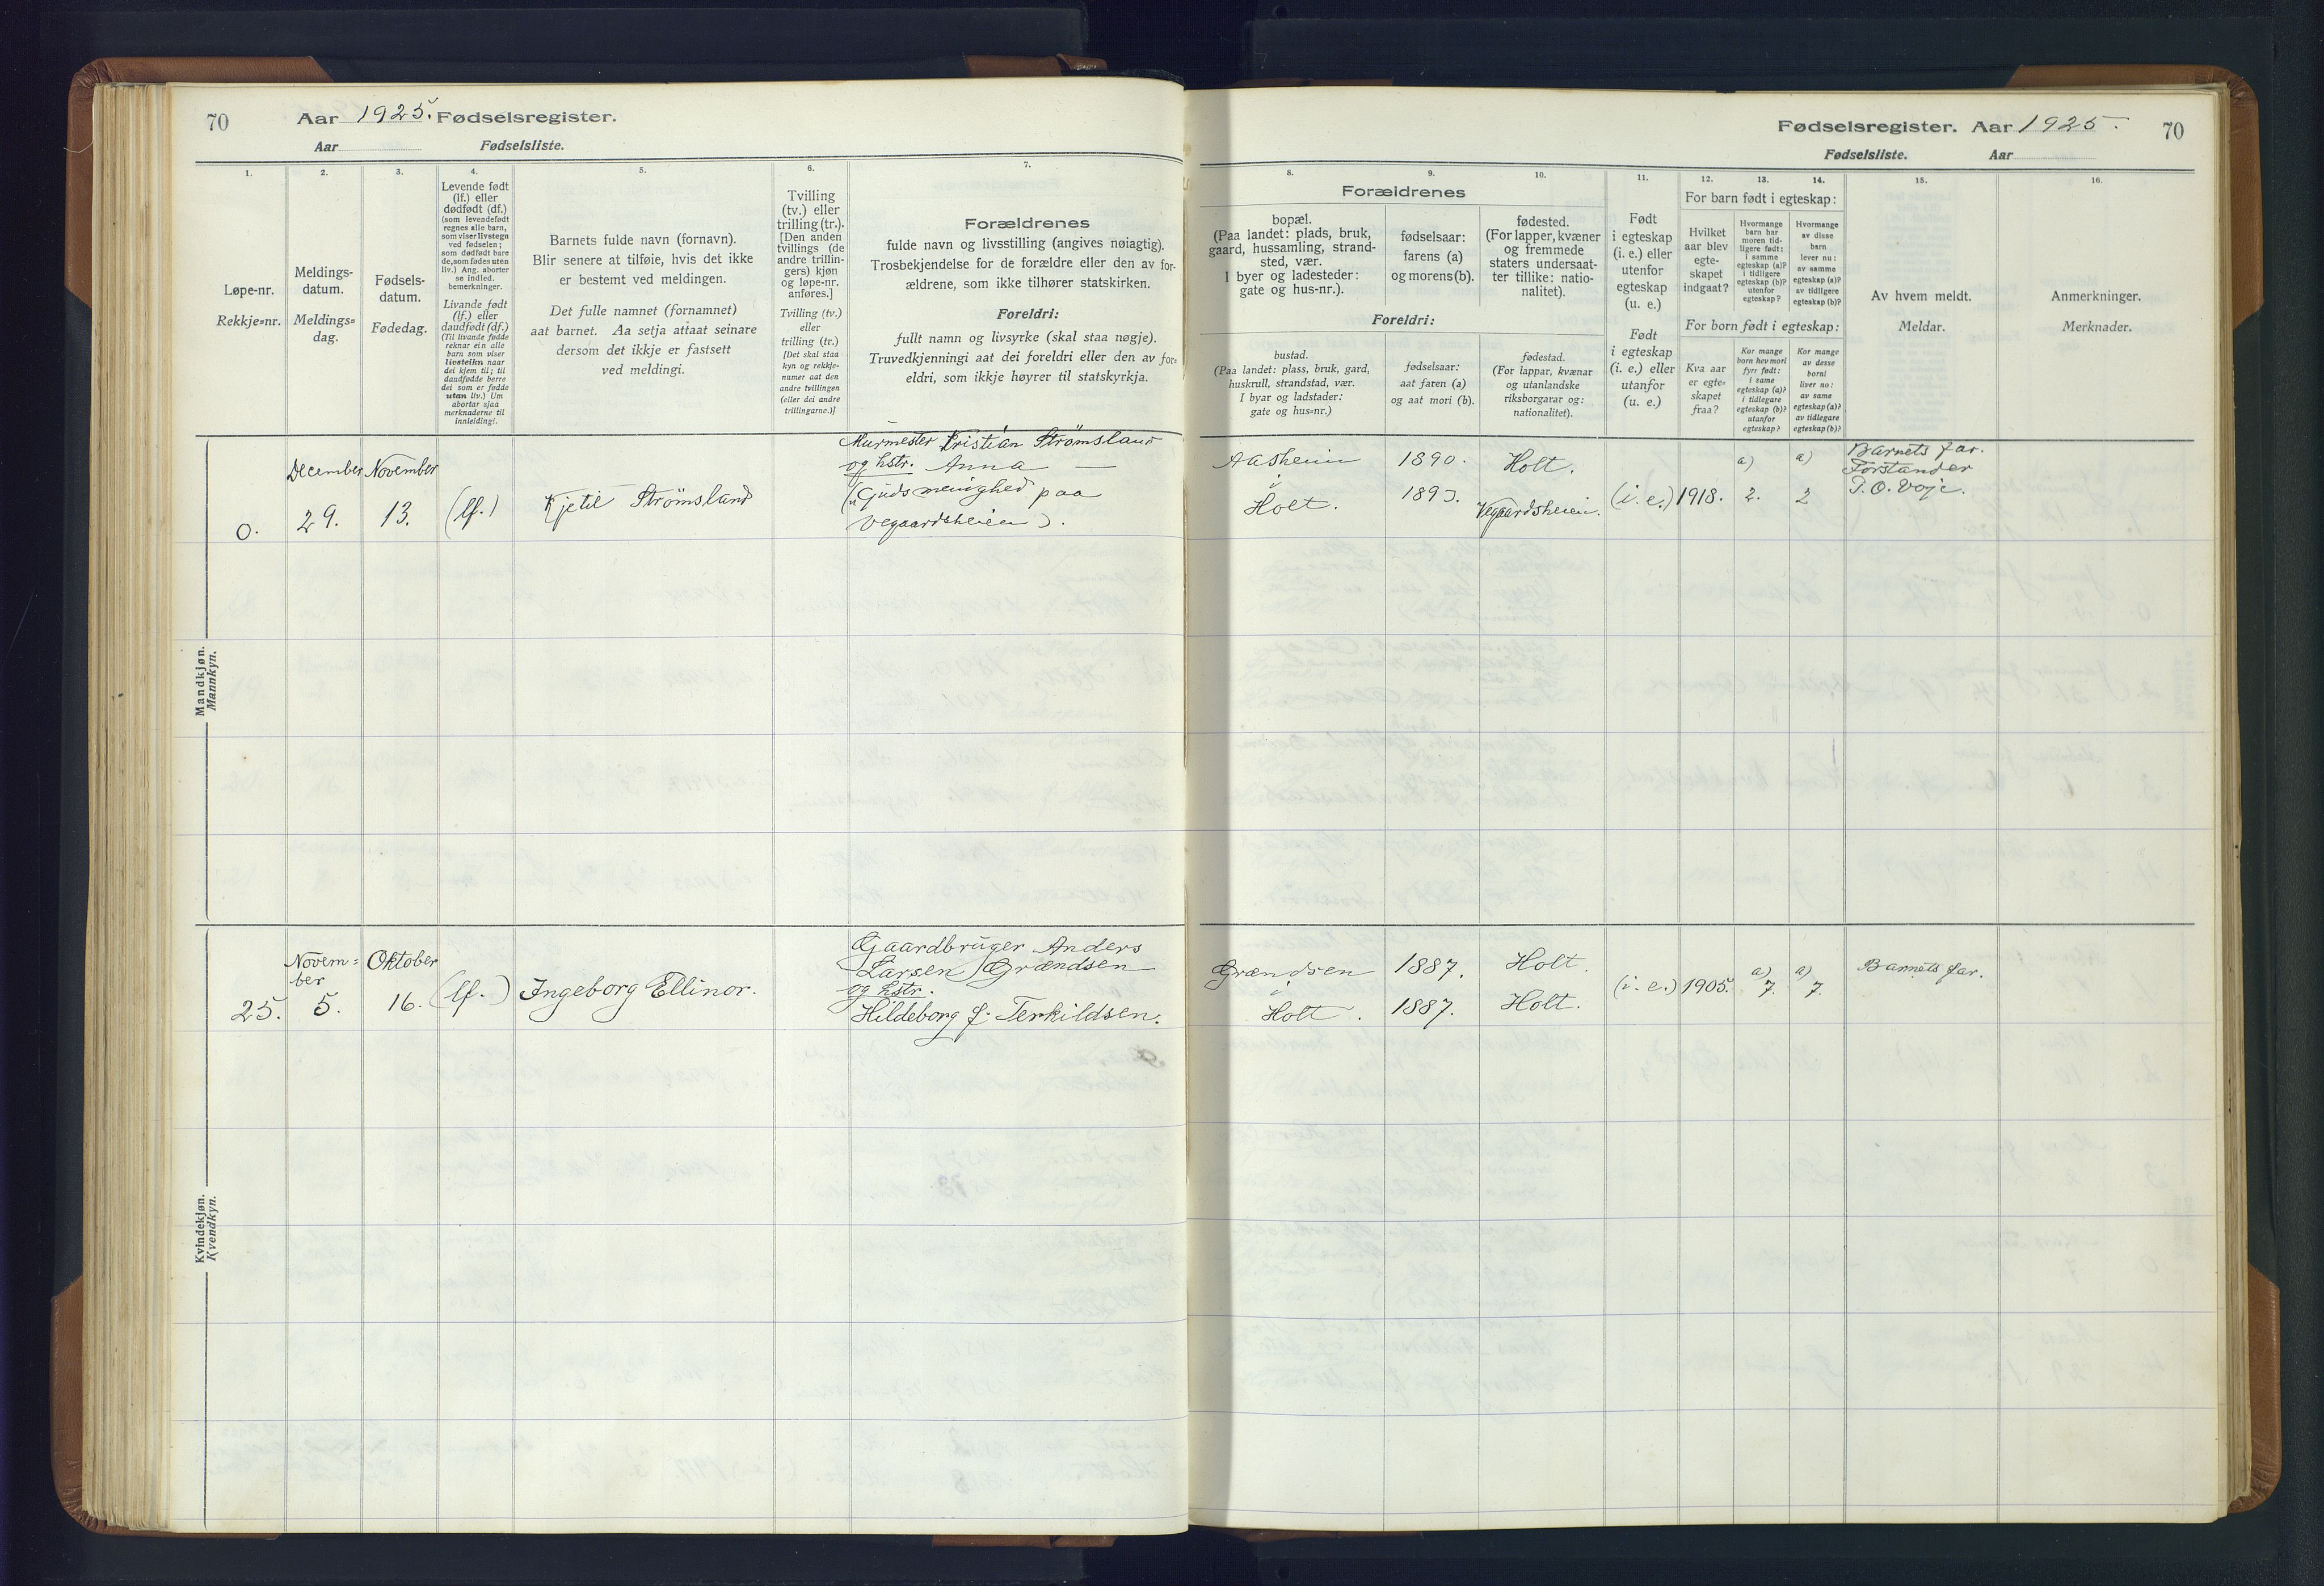 70
Aar 1925. Fødselsregister.
Aar
Fødselsliste.
1.
Løpe-nr.
Rekkje-nr.
2.
Meldings-
datum.
Meldings-
dag.
3.
Fødsels-
datum.
Fødedag.
4.
Levende født
(lf.) eller
dødfødt (df.)
(som levendefødt
regnes alle barn,
som viser livstegn
ved fødselen;
som dødfødt bare
de, som fødes uten
liv.) Ang. aborter
se indled.
bemerkninger.
Livande født
(lf.) eller
daudfødt (df.)
(Til livande fødde
reknar ein alle
barn som viser
livsteikn naar
dei kjem til; til
daudfødde berre
dei som er fødde
utan liv.) Um
abortar sjaa
merknaderne til
innleidingi.
5.
Barnets fulde navn (fornavn).
Blir senere at tilføie, hvis det ikke
er bestemt ved meldingen.
Det fulle namnet (fornamnet)
aat barnet. Aa setja attaat seinare
dersom det ikkje er fastsett
ved meldingi.
6.
Tvilling
(tv.) eller
trilling (tr.).
[Den anden
tvillings (de
andre trillin-
gers) kjøn
og løpe-nr.
anføres.]
Tvilling (tv.)
eller
trilling (tr.)
[Det skal staa
kyn og rekkje-
numer aat den
andre tvillingen
(eller dei andre
trillingarne.)]
7.
Forældrenes
fulde navn og livsstilling (angives nøiagtig).
Trosbekjendelse for de forældre eller den av for-
ældrene, som ikke tilhører statskirken.
Foreldri:
fullt namn og livsyrke (skal staa nøgje).
Truvedkjenningi aat dei foreldri eller den av for-
eldri, som ikkje høyrer til statskyrkja.
Mandkjøn.
Mannkyn.
0.
December
29.
November
13.
(lf.)
Kjetil Strømsland
Murmester Kristian Strømsland
og hstr. Anna —
("Guds menighed paa
Vegaardsheien).
Kvindekjøn.
Kvendkyn.
25.
Novem=
ber
5.
Oktober
16.
(lf.)
Ingeborg Ellinor.
Gaardbruger Anders
Larsen Grændsen
og hstr.
Hildeborg f. Terkildsen.
Fødselsregister. Aar 1925.
70
Fødselsliste.
Aar
8.
9.
10.
Forældrenes
bopæl.
(Paa landet: plads, bruk,
gaard, hussamling, strand-
sted, vær.
I byer og ladesteder:
gate og hus-nr.).
fødselsaar:
farens (a)
og morens (b).
fødested.
(For lapper, kvæner
og fremmede
staters undersaat-
ter tillike: natio-
nalitet).
Foreldri:
bustad.
(Paa landet: plass, bruk, gard,
huskrull, strandstad, vær.
I byar og ladstader:
gate og hus-nr.)
fødselsaar:
aat faren (a)
og aat mori (b).
fødestad.
(For lappar, kvænar
og utanlandske
riksborgarar og:
nationalitet).
11.
Født
i egteskap
(i. e.) eller
utenfor
egteskap
(u. e.)
Født
i egteskap
(i. e.) eller
utanfor
(u. e.)
12.
13.
14.
For barn født i egteskap:
Hvilket
aar blev
egte-
skapet
indgaat?
Hvormange
barn har
moren tid-
ligere født:
i samme
egteskap (a)?
i tidligere
egteskap (b)?
utenfor
egteskap?
Hvormange
av disse
barn
lever nu:
av samme
egteskap (a)?
av tidligere
egteskap (b)?
For born født i egteskap:
Kva aar
er egte-
skapet
fraa?
Kor mange
born hev mori
fyrr født:
i same
egteskap (a)?
i tidlegare
egteskap (b)?
utanfor
egteskap?
Kor mange
av desse
borni
liver no:
av same
egteskap (a)?
av tidlegare
egteskap (b)?
15.
Av hvem meldt.
Meldar.
16.
Anmerkninger.
Merknader.
Aasheim
i
Holt.
1890.
1893.
Holt.
Vegaardsheien.
(i. e.)
1918.
a)
2.
a)
2
Barnets far.
Forstander
T. O. Voje.
Grændsen
i
Holt.
1887.
1887.
Holt.
Holt.
(i. e.)
1905.
a)
7.
a)
7.
Barnets far.